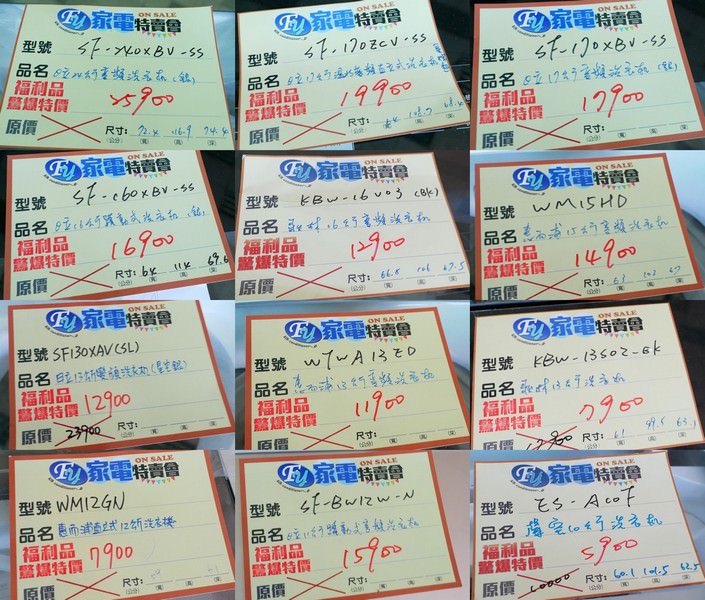 FU 家電特賣會
ON SALE
型號 SF-240XBV-SS
品名 日立24公斤變頻洗衣機(銀)
福利品
驚爆特價 25900
原價 尺寸: 72.4 74.4
(公分) (寬) (高) (深)
FU 家電特賣會
ON SALE
型號 SF-170ZCV-SS
品名
福利品
驚爆特價 19900
原價 尺寸: 64 68.4
(公分) (寬) (高) (深)
FU 家電特賣會
ON SALE
型號 SF-170XBV-SS
品名 日立17公斤變頻洗衣機(銀)
福利品
驚爆特價 17900
原價 尺寸:
(公分) (寬) (高) (深)
FU 家電特賣會
ON SALE
型號 SF-160XBV-SS
品名 日立16公斤躍動式洗衣機(銀)
福利品
驚爆特價 16900
原價 尺寸: 64 114 69.6
(公分) (寬) (高) (深)
FU 家電特賣會
ON SALE
型號 KBW-16V03(BK)
品名 歌林16公斤變頻洗衣机
福利品
驚爆特價 12900
原價 尺寸: 66.8 106 67.5
(公分) (寬) (高) (深)
FU 家電特賣會
ON SALE
型號 WM15HD
品名 惠而浦15公斤變頻洗衣机
福利品
驚爆特價 14900
原價 尺寸: 61 67
(公分) (寬) (高) (深)
FU 家電特賣會
ON SALE
型號 SF130XAV(SL)
品名 日立13公斤變頻洗衣機(星空銀)
福利品
驚爆特價 12900
原價 23900 尺寸:
(公分) (寬) (高) (深)
FU 家電特賣會
ON SALE
型號 W7WA13ED
品名 惠而浦13公斤變頻洗衣机
福利品
驚爆特價 11900
原價 尺寸:
(公分) (寬) (高) (深)
FU 家電特賣會
ON SALE
型號 KBW-13S02-BK
品名 歌林13公斤洗衣机
福利品
驚爆特價 7900
原價 尺寸: 61 99.5
(公分) (寬) (高) (深)
FU 家電特賣會
ON SALE
型號 WM12GN
品名 惠而浦直立式12公斤洗衣機
福利品
驚爆特價 7900
原價 尺寸:
FU 家電特賣會
ON SALE
型號 SF-BW12W-N
品名 躍動式變頻洗衣机
福利品
驚爆特價 15900
原價 尺寸:
(公分) (寬) (高) (深)
FU 家電特賣會
ON SALE
型號 ES-A10F
品名 聲寶10公斤洗衣机
福利品
驚爆特價 5900
原價 10000 尺寸: 60.1 101.5 62.5
(公分) (寬) (高) (深)